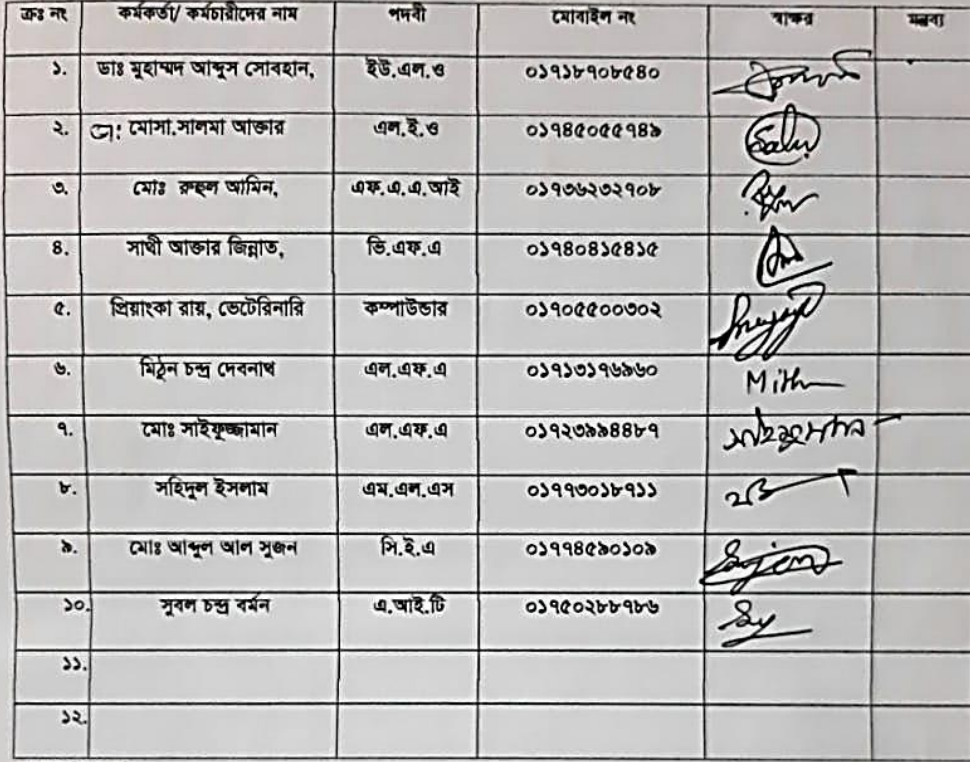 ক্রঃ নং কর্মকর্তা/ কর্মচারীদের নাম পদবী মোবাইল নং স্বাক্ষর মন্তব্য
১. ডাঃ মুহাম্মদ আব্দুস সোবহান, ইউ.এল.ও ০১৭১৮৭০৮৫৪০
২. ডা: মোসা.সালমা আক্তার এল.ই.ও ০১৭৪৫০৫৫৭৪৯ Salu
৩. মোঃ রুহুল আমিন, এফ.এ.এ.আই ০১৭৩৬২৩২৭০৮
৪. সাথী আক্তার জিন্নাত, ভি.এফ.এ ০১৭৪০৪১৫৪১৫
৫. প্রিয়াংকা রায়, ভেটেরিনারি কম্পাউন্ডার ০১৭০৫৫০০৩০২
৬. মিঠুন চন্দ্র দেবনাথ এল.এফ.এ ০১৭১৩১৭৬৯৬০ Mith
৭. মোঃ সাইফুজ্জামান এল.এফ.এ ০১৭২৩৯৯৪৪৮৭ সাইফুজ্জামান
৮. সহিদুল ইসলাম এম.এল.এস ০১৭৭৩০১৮৭১১
৯. মোঃ আব্দুল আল সুজন সি.ই.এ ০১৭৭৪৫৯০১০৯ Sujon
১০. সুবল চন্দ্র বর্মন এ.আই.টি ০১৭৫০২৮৮৭৮৬
১১.
১২.